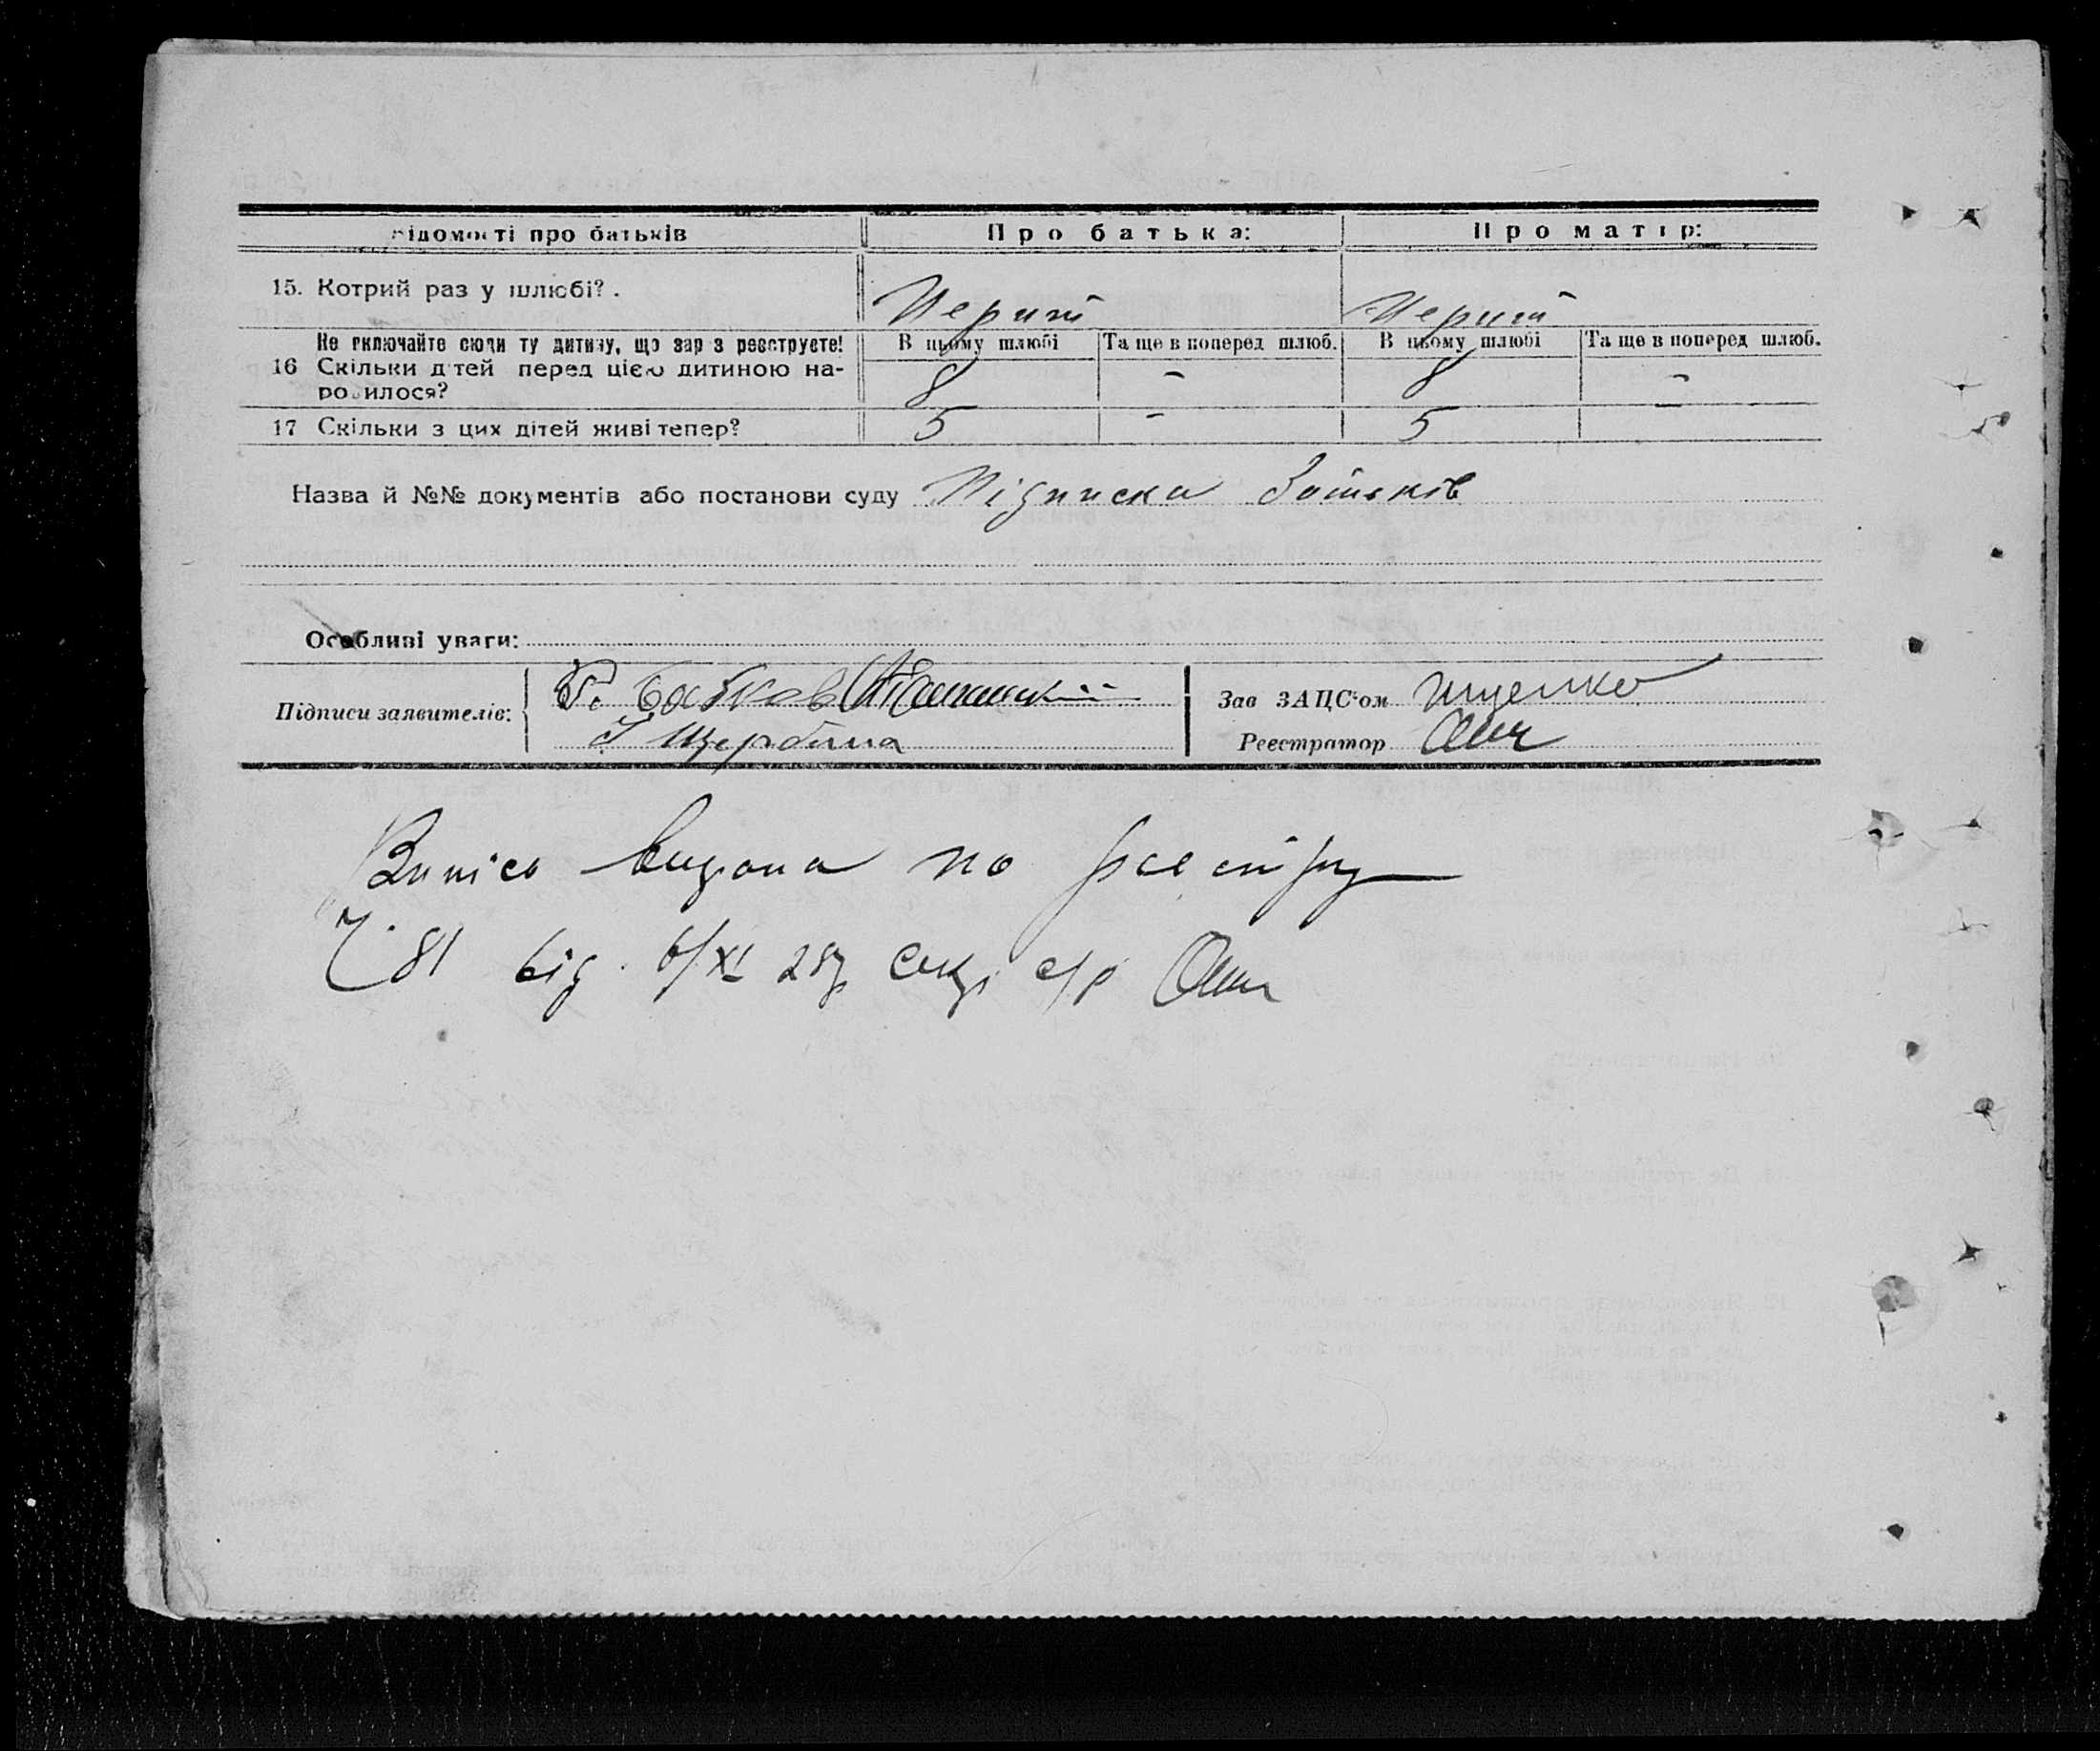 Відомості про батьків Про батька: Про матір:
15. Котрий раз у шлюбі?. Перший Перший
Не включайте сюди ту дитину, що зараз реєструєте! В цьому шлюбі Та ще в поперед шлюб. В цьому шлюбі Та ще в поперед шлюб.
16 Скільки дітей перед цією дитиною на- 8 - 8 -
родилося?
17 Скільки з цих дітей живі тепер? 5 - 5
Назва й №№ документів або постанови суду Підписка батьків
Особливі уваги:
Підписи заявителів:
І Щербина
Зав ЗАЦС'ом Ищенко
Реєстратор
Випісь видана по реєстру
Ч. 81 від 6/XI 28р. Секр с/р